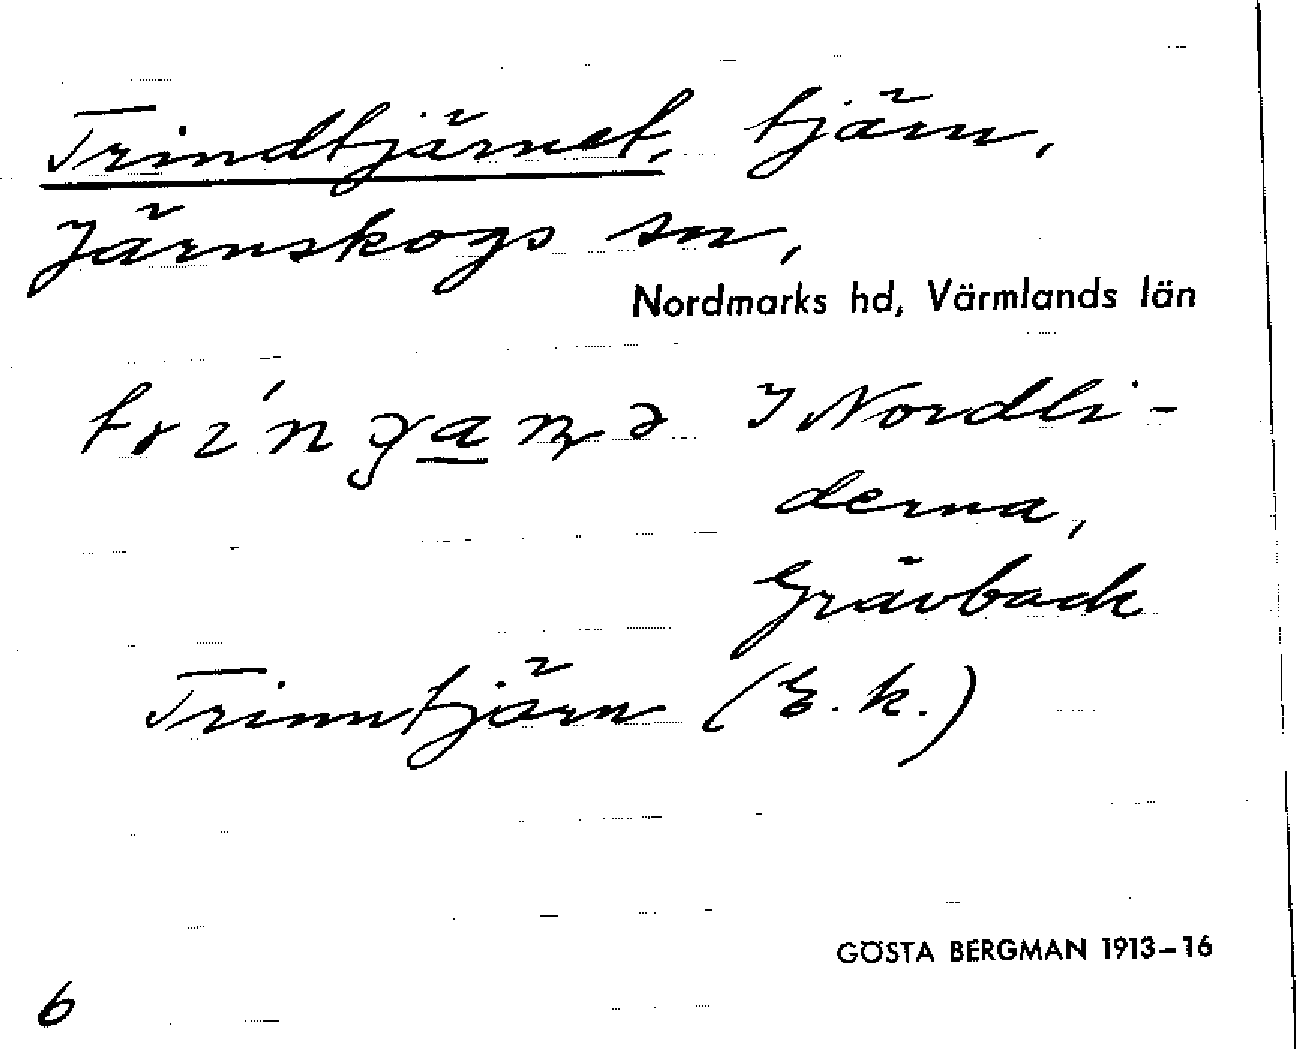 Trindtjärnet, tjärn,
Järnskogs sn,
Nordmarks hd, Värmlands län
I Nordli-
derna,
Gråvback
Trinntjärn (E.k.)
GÖSTA BERGMAN 1913–16
6